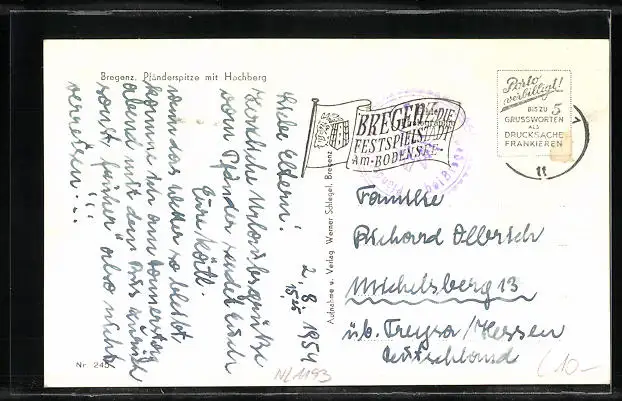 Bregenz, Pfänderspitze mit Hochberg
Liebe Eltern!
Herzliche Urlaubsgrüße
vom Pfänder sendet Euch
Eure Käthe.
wenn das Wetter so bleibt
komme ich am Donnerstag
abend mit dem Bus zurück
sonst früher also nicht
vergessen!!!
2.8.1954
Nr. 245
N/1193
Aufnahme u. Verlag Werner Schlegel, Bregenz
BREGENZ DIE
FESTSPIELSTADT
AM BODENSEE
Porto
verbilligt!
BIS ZU 5
GRUSSWORTEN
ALS
DRUCKSACHE
FRANKIEREN
11
Familie
Richard Olbrich
Michelsberg 13
üb. Treysa/Hessen
Deutschland
(10-